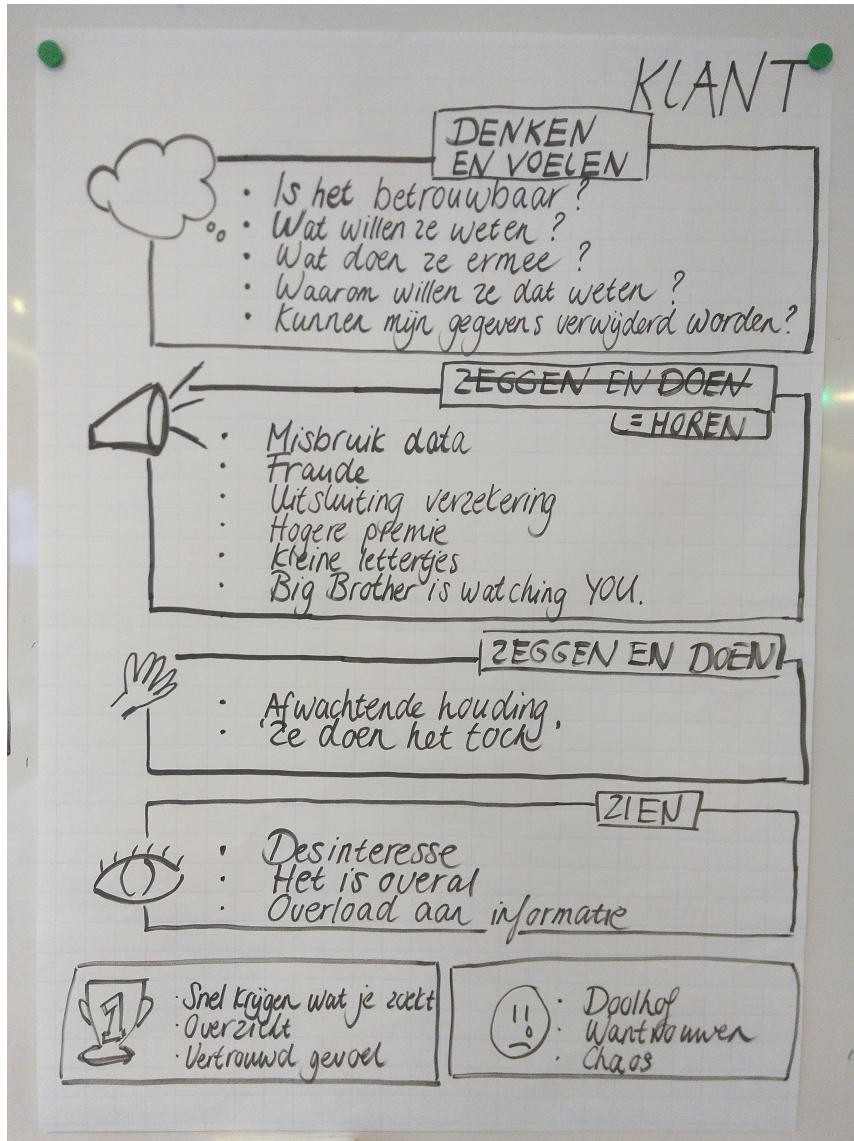 KLANT
DENKEN
EN VOELEN
• Is het betrouwbaar?
• Wat willen ze weten?
• Wat doen ze ermee?
• Waarom willen ze dat weten?
• Kunnen mijn gegevens verwijderd worden?
ZEGGEN EN DOEN
= HOREN
• Misbruik data
• Fraude
• Uitsluiting verzekering
• Hogere premie
• Kleine lettertjes
• Big Brother is watching YOU.
ZEGGEN EN DOEN
• Afwachtende houding
• 'Ze doen het toch'
ZIEN
• Desinteresse
• Het is overal
• Overload aan informatie
1
• Snel krijgen wat je zoekt
• Overzicht
• Vertrouwd gevoel
• Doolhof
• Wantrouwen
• Chaos